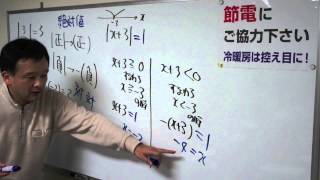 |3|=3
絶対値
x
|x+3|
節電に
ご協力下さい
冷暖房は控え目に!
|正|→(正)
|負|→-(負)
x+3≧0
すなわち
x≧-3
の時
x+3=1
x+3<0
すなわち
x<-3
の時
-(x+3)=1